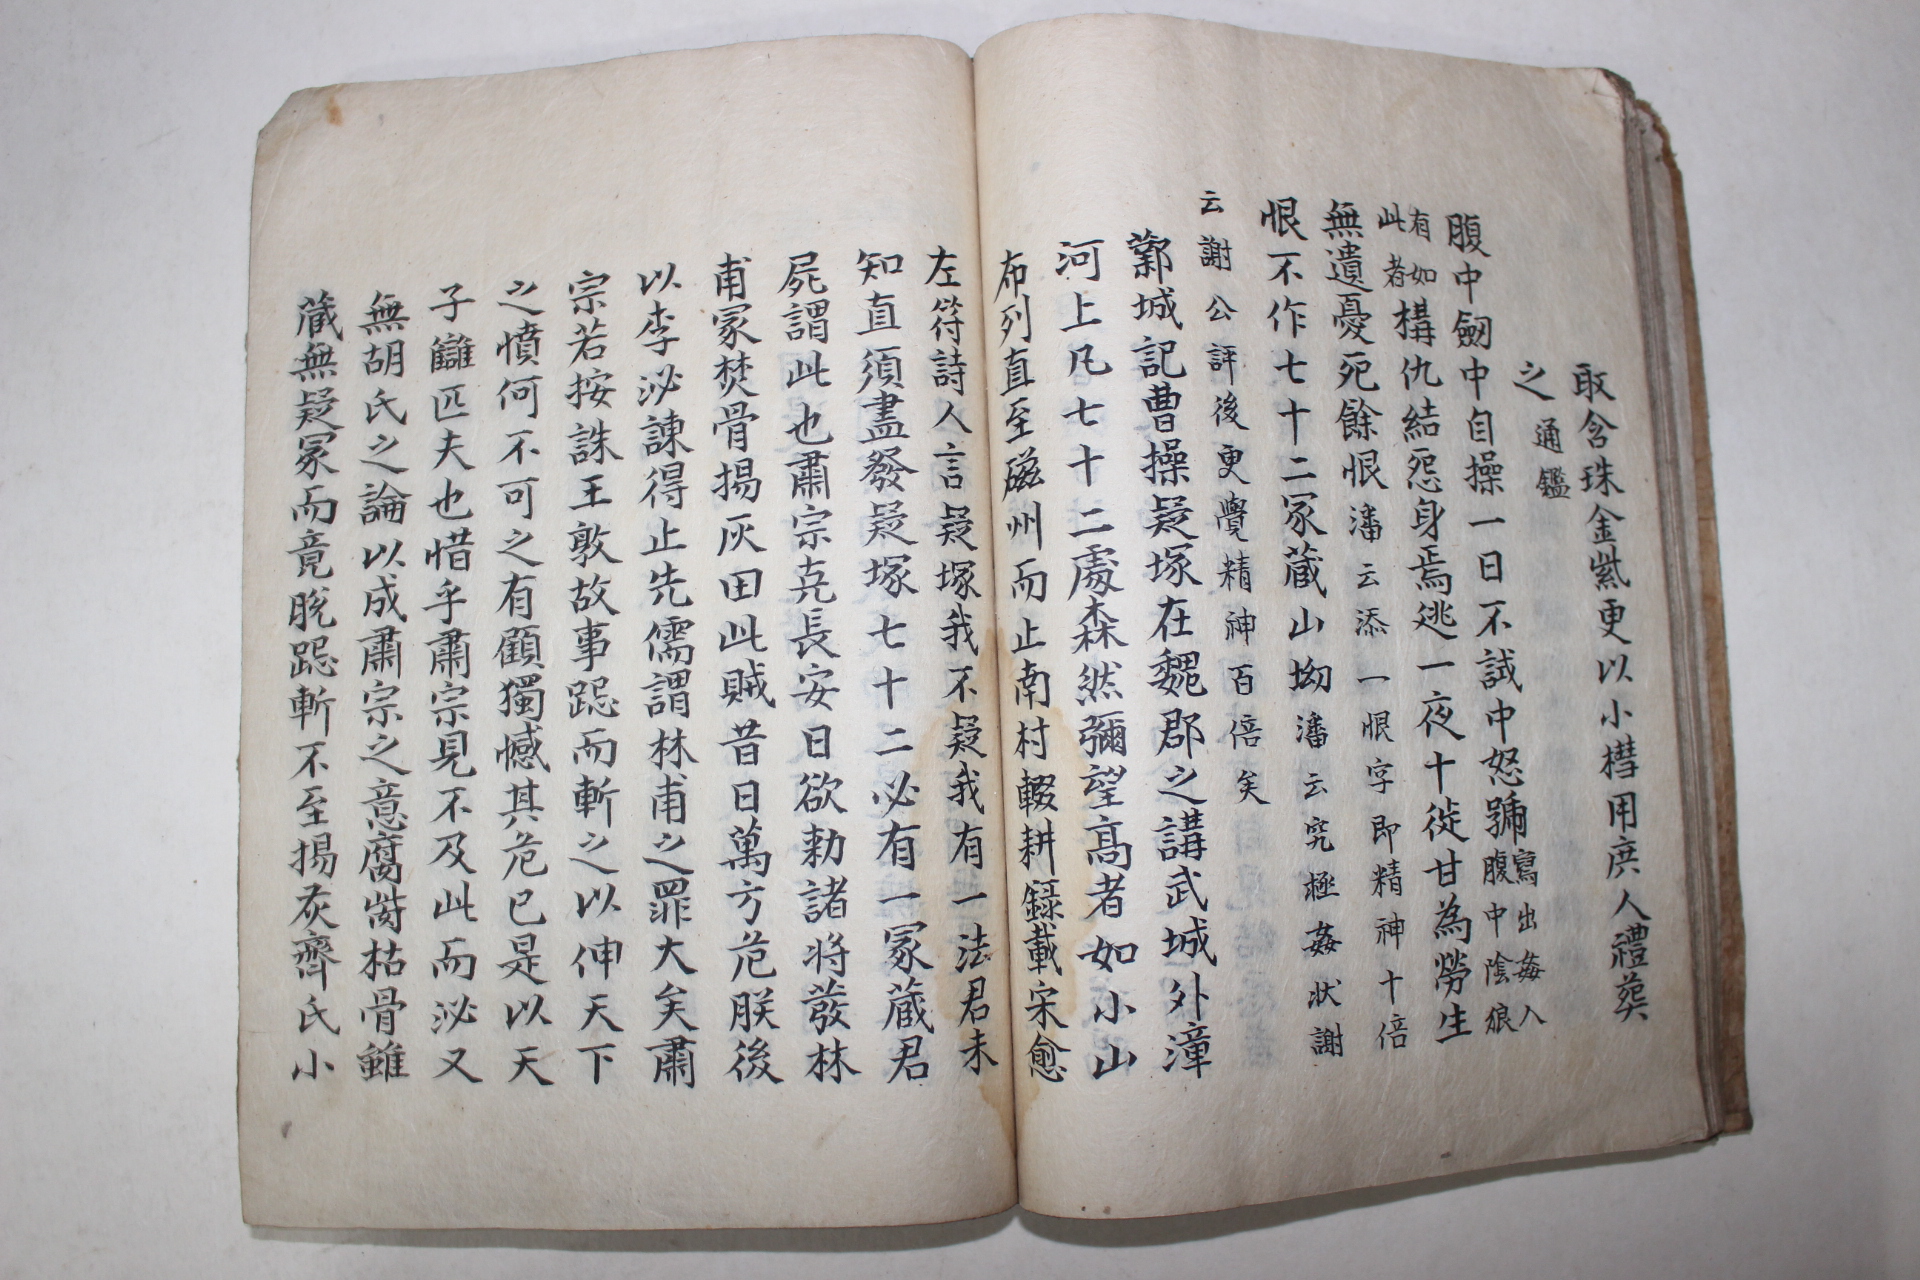 取含珠金紫更以小槥用庶人禮葬
之 通鑑
腹中劒中自操一日不試中怒號 寫出姦人 腹中陰狠
有如 此者 構仇結怨身焉逃一夜十徙甘為勞生
無遺憂死餘恨 潘云添一恨字即精神十倍
恨不作七十二冢蔵山坳 潘云究極姦状謝
云謝公評後更覺精神百倍矣
鄴城記曹操疑塚在魏郡之講武城外漳
河上凡七十二處森然彌望高者如小山
布列直至磁州而止南村輟耕録載宋愈
左符詩人言疑塚我不疑我有一法君未
知直須盡發疑塚七十二必有一冢蔵君
屍謂此也肅宗克長安日欲勅諸将發林
甫冢焚骨揚灰田此賊昔日萬方危朕後
以李泌諫得止先儒謂林甫之罪大矣肅
宗若按誅王敦故事跽而斬之以伸天下
之憤何不可之有顧獨憾其危已是以天
子讎匹夫也惜乎肅宗見不及此而泌又
無胡氏之論以成肅宗之意腐胔枯骨雖
蔵無疑冢而竟脫跽斬不至揚灰齊氏小